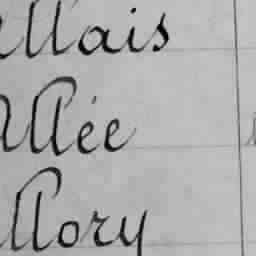 Allais
Allée
Allory